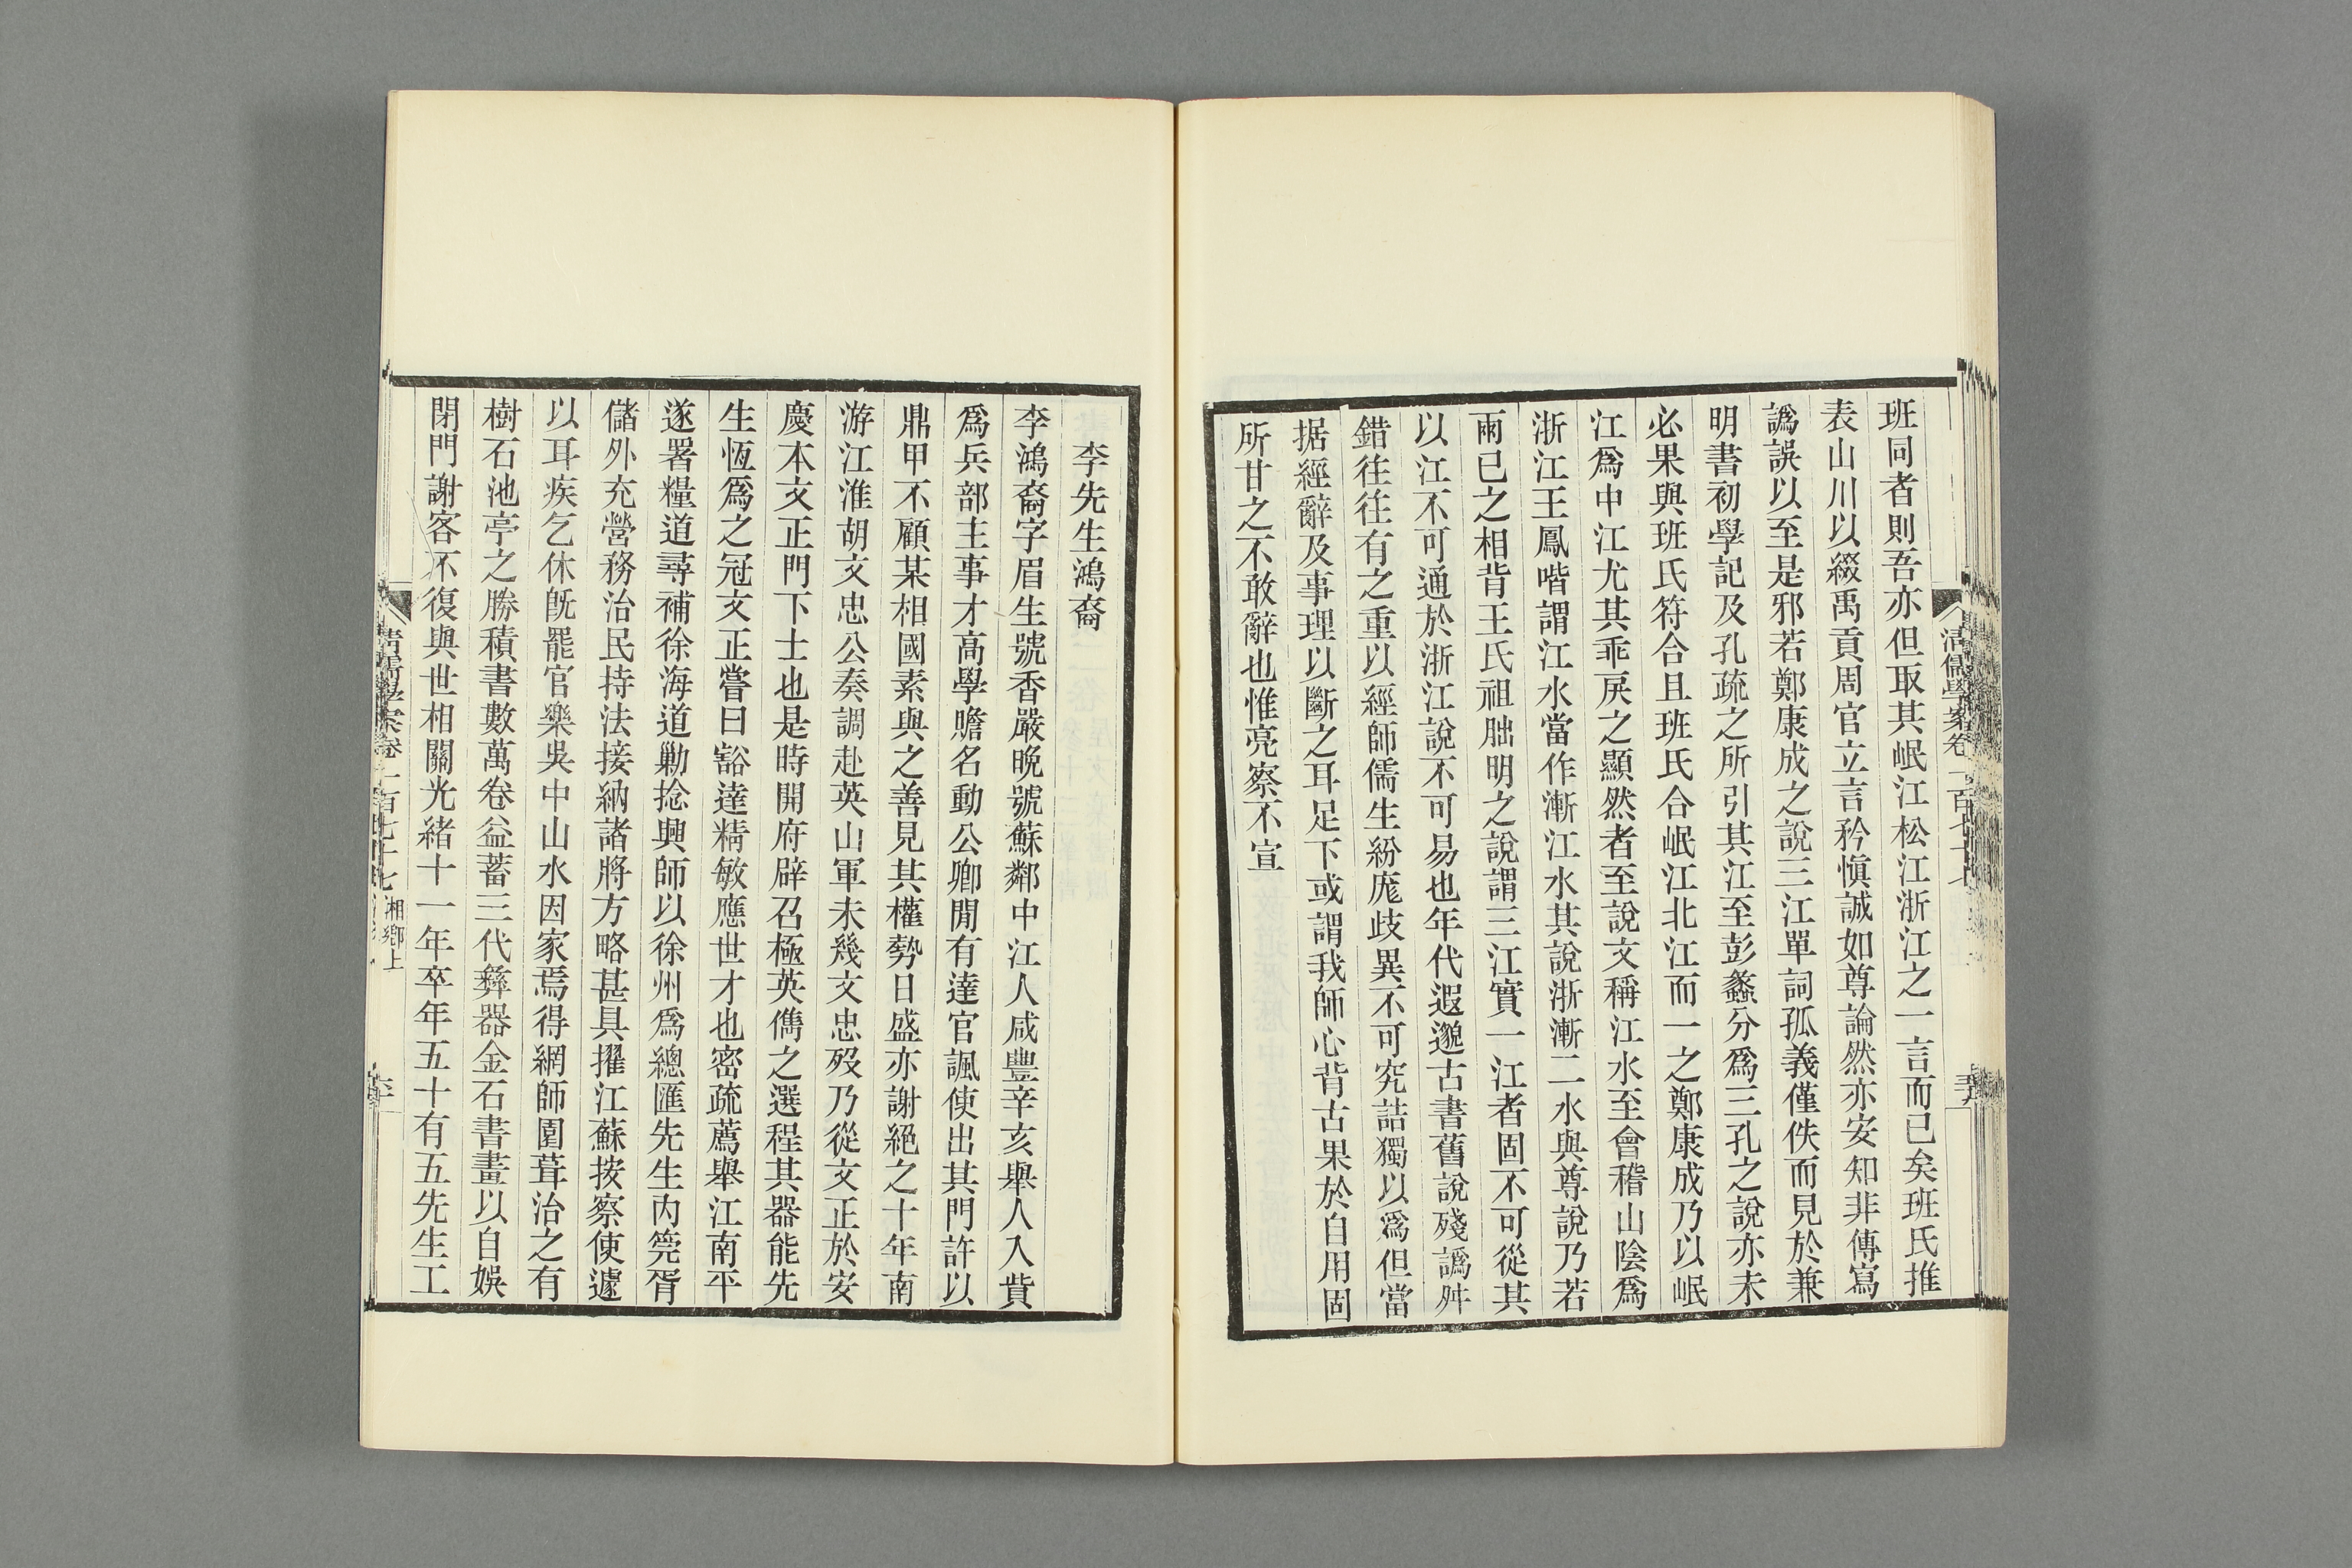 班同者則吾亦但取其岷江松江浙江之一言而已矣班氏推
表山川以綴禹貢周官立言矜愼誠如尊論然亦安知非傳寫
譌誤以至是邪若鄭康成之說三江單詞孤義僅佚而見於兼
明書初學記及孔疏之所引其江至彭蠡分爲三孔之說亦未
必果與班氏符合且班氏合岷江北江而一之鄭康成乃以岷
江爲中江尤其乖戾之顯然者至說文稱江水至會稽山陰爲
浙江王鳳喈謂江水當作漸江水其說浙漸二水與尊說乃若
兩已之相背王氏祖朏明之說謂三江實一江者固不可從其
以江不可通於浙江說不可易也年代遐邈古書舊說殘譌舛
錯往往有之重以經師儒生紛厖歧異不可究詰獨以爲但當
据經辭及事理以斷之耳足下或謂我師心背古果於自用固
所甘之不敢辭也惟亮察不宣
清儒學案卷一百七十七
李先生鴻裔
李鴻裔字眉生號香嚴晚號蘇鄰中江人咸豐辛亥舉人入貲
爲兵部主事才高學贍名動公卿閒有達官諷使出其門許以
鼎甲不顧某相國素與之善見其權勢日盛亦謝絕之十年南
游江淮胡文忠公奏調赴英山軍未幾文忠歿乃從文正於安
慶本文正門下士也是時開府辟召極英儁之選程其器能先
生恆爲之冠文正嘗曰豁達精敏應世才也密疏薦舉江南平
遂署糧道尋補徐海道勦捻興師以徐州爲總匯先生內筦胥
儲外充營務治民持法接納諸將方略甚具擢江蘇按察使遽
以耳疾乞休旣罷官樂吳中山水因家焉得網師園葺治之有
樹石池亭之勝積書數萬卷益蓄三代彝器金石書畫以自娛
閉門謝客不復與世相關光緒十一年卒年五十有五先生工
清儒學案卷一百七十七 湘鄉上